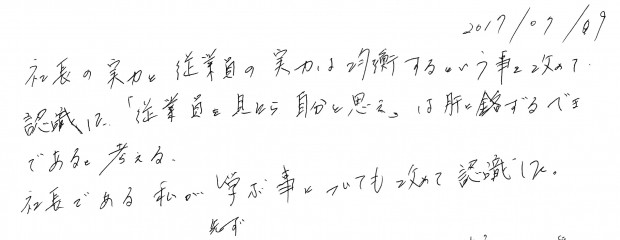 2017/07/09
社長の実力と従業員の実力は均衡するという事を改めて
認識した。「従業員を見たら自分と思え」は肝に銘ずるべき
であると考える。
社長である私が学ぶ事についても改めて認識した。
必ず